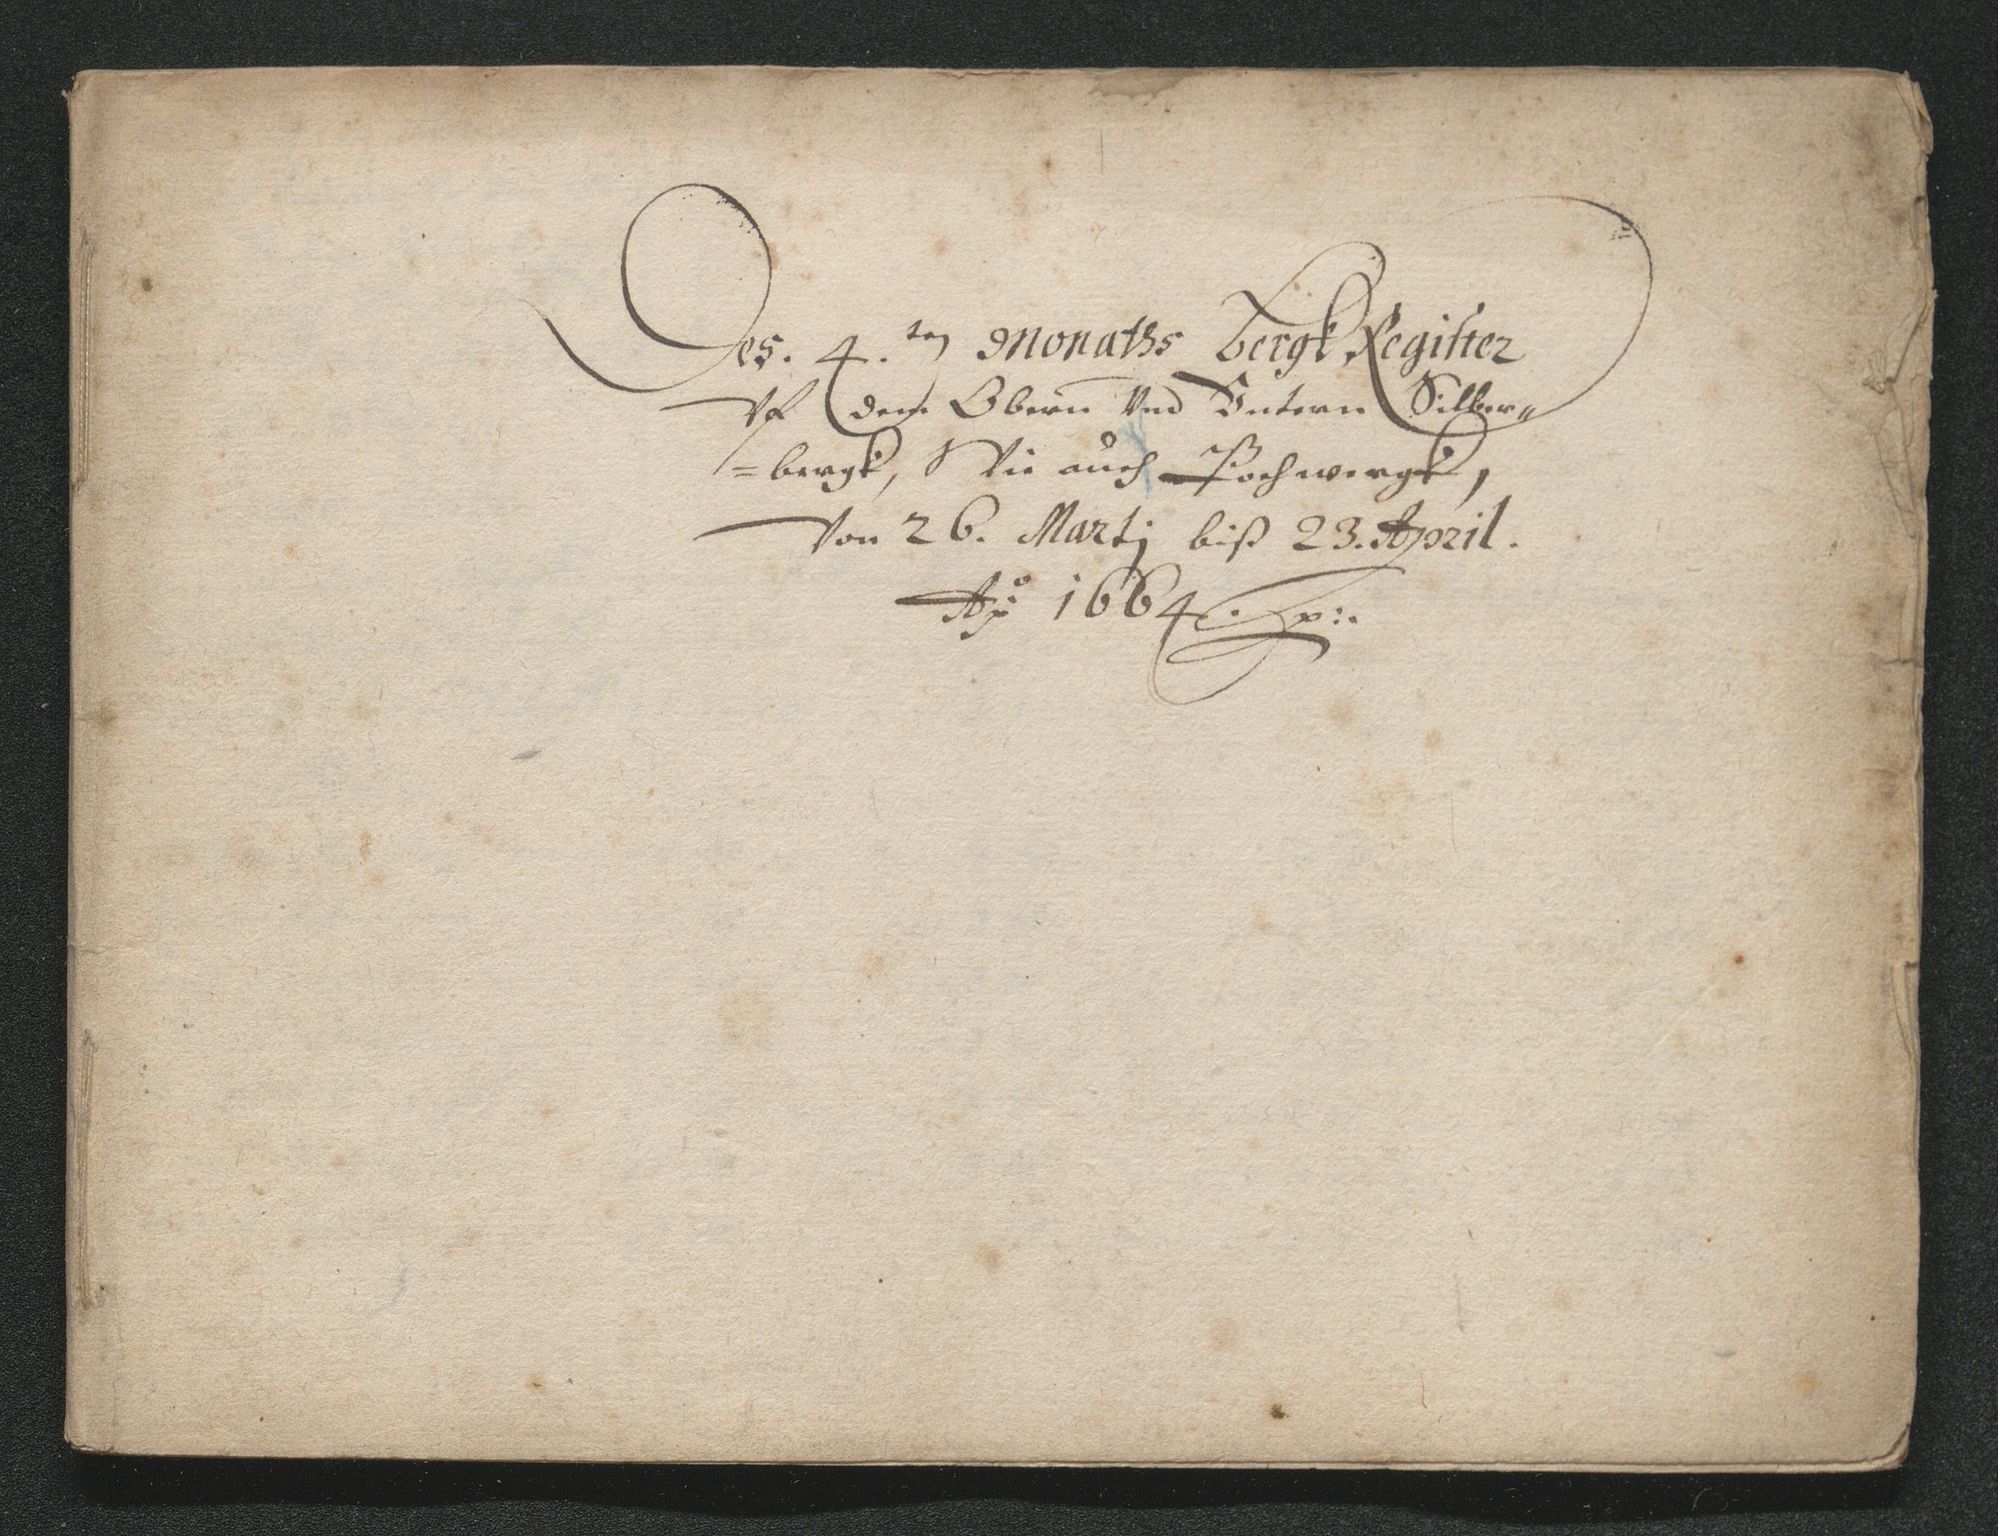 Des. 4.ten Monaths Bergk Register
Vf dem Obern Vnd Vntern Silber=
=bergk, Wie auch Pochwergk,
Von 26. Martj biß 23. April.
Ao 1664.